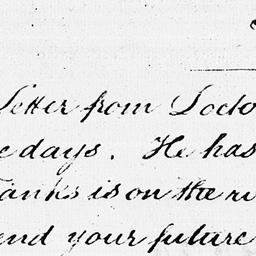 Letter from Docto
e days. He has
anks is on the
end your future